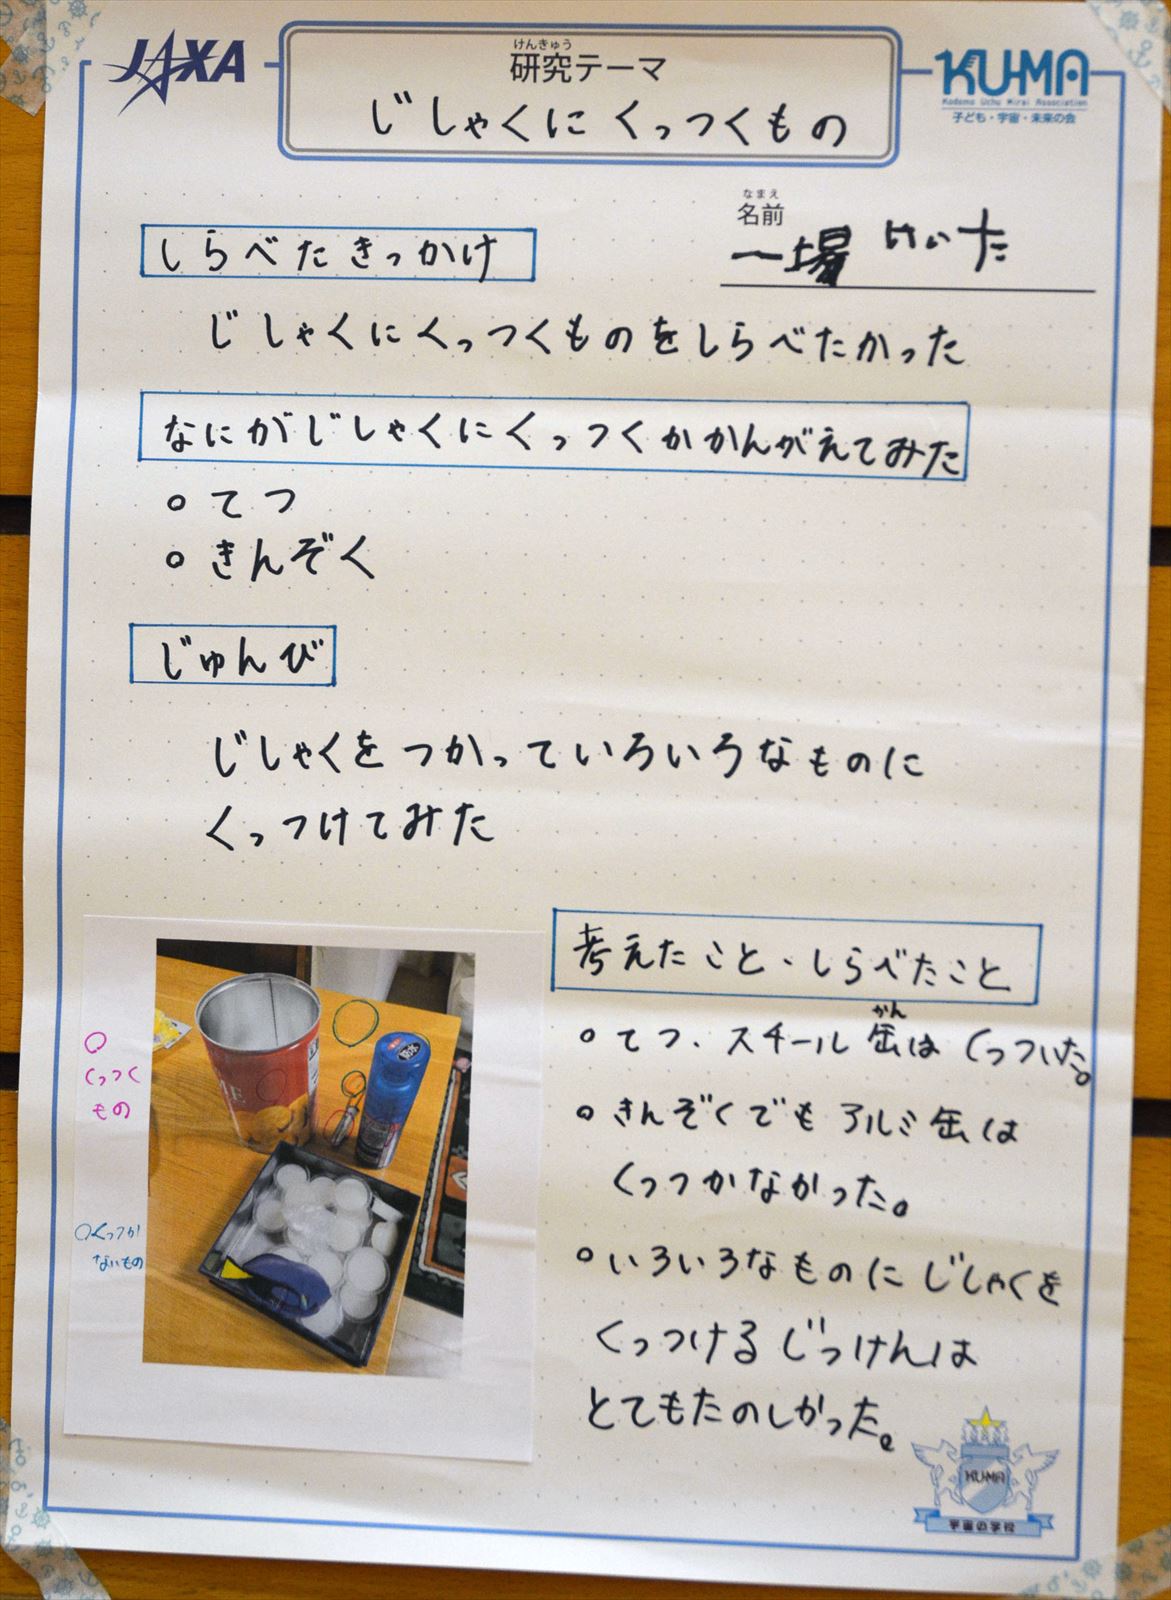 JAXA
けんきゅう
研究テーマ
じしゃくにくっつくもの
KU-MA
Kodomo Uchu Mirai Association
子ども・宇宙・未来の会
なまえ
名前
一場 けいた
しらべたきっかけ
じしゃくにくっつくものをしらべたかった
なにがじしゃくにくっつくかかんがえてみた
○てつ
○きんぞく
じゅんび
じしゃくをつかっていろいろなものに
くっつけてみた
○
くっつく
もの
○くっつか
ないもの
考えたこと・しらべたこと
かん
○てつ、スチール缶はくっついた。
○きんぞくでもアルミ缶は
くっつかなかった。
○いろいろなものにじしゃくを
くっつけるじっけんは
とてもたのしかった。
KU-MA
宇宙の学校